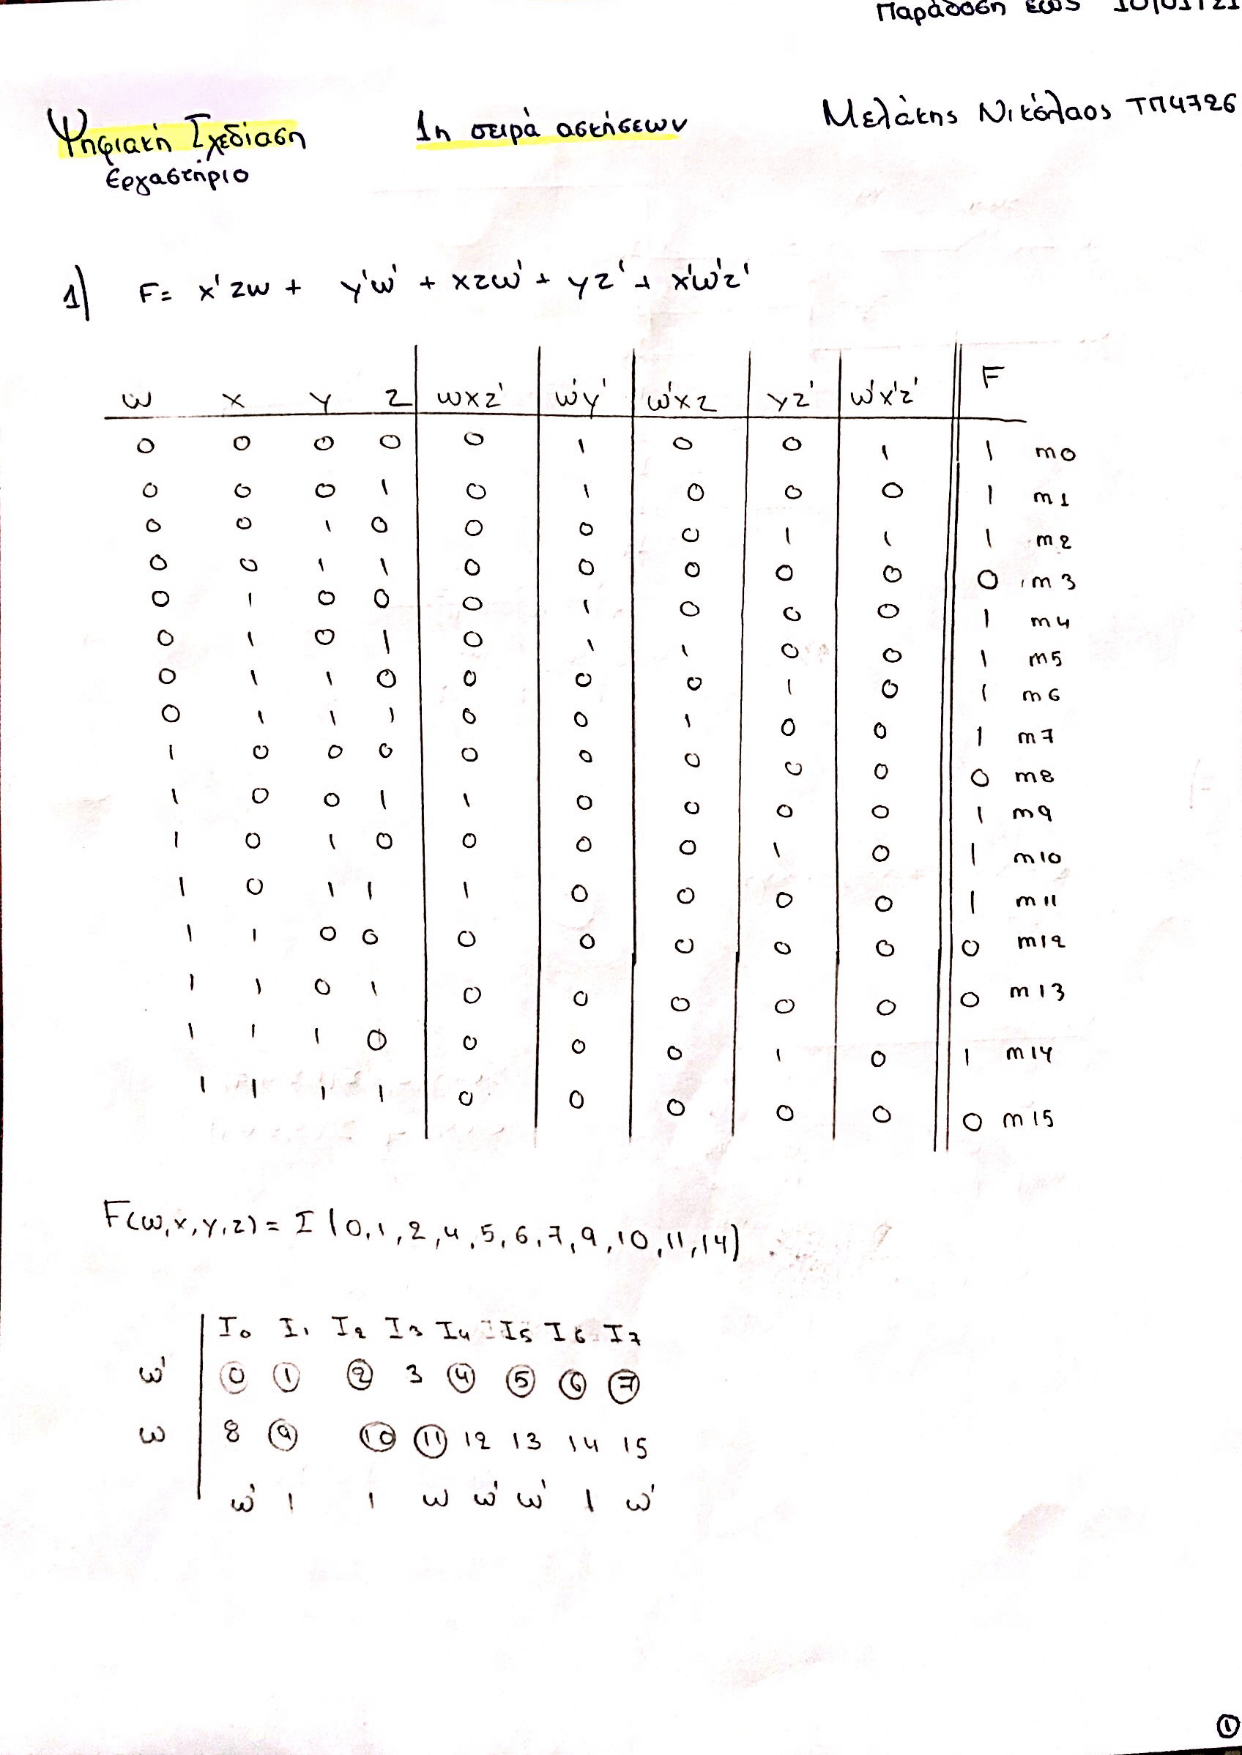 Παράδοση έως 10/01/21
Ψηφιακή Σχεδίαση 1η σειρά ασκήσεων Μελάκης Νικόλαος ΤΠ4726
Εργαστήριο
1) F= x'zw + y'w' + xzw' + yz' + x'w'z'
w x y z wxz' w'y' w'xz yz' w'x'z' F
0 0 0 0 0 1 0 0 1 1 m0
0 0 0 1 0 1 0 0 0 1 m1
0 0 1 0 0 0 0 1 1 1 m2
0 0 1 1 0 0 0 0 0 0 m3
0 1 0 0 0 1 0 0 0 1 m4
0 1 0 1 0 1 1 0 0 1 m5
0 1 1 0 0 0 0 1 0 1 m6
0 1 1 1 0 0 1 0 0 1 m7
1 0 0 0 0 0 0 0 0 0 m8
1 0 0 1 1 0 0 0 0 1 m9
1 0 1 0 0 0 0 1 0 1 m10
1 0 1 1 1 0 0 0 0 1 m11
1 1 0 0 0 0 0 0 0 0 m12
1 1 0 1 0 0 0 0 0 0 m13
1 1 1 0 0 0 0 1 0 1 m14
1 1 1 1 0 0 0 0 0 0 m15
F(w,x,y,z) = Σ (0,1,2,4,5,6,7,9,10,11,14)
I0 I1 I2 I3 I4 I5 I6 I7
w' 0 1 2 3 4 5 6 7
w 8 9 10 11 12 13 14 15
w' 1 1 w w' w' 1 w'
1